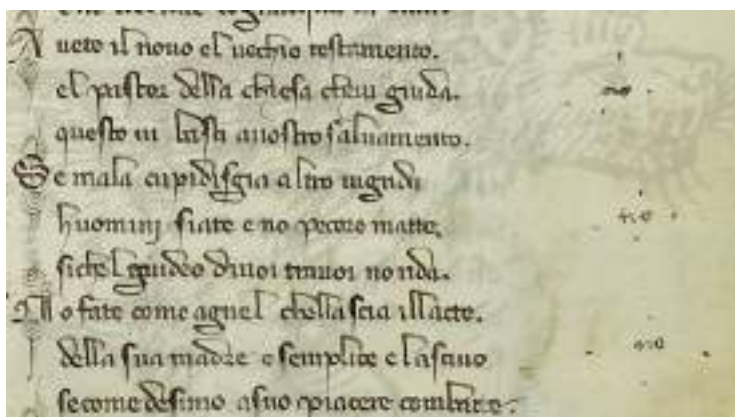 A veto il novo el vechio testamento.
el pastor della chiesa chevi guida.
questo vi basti a nostro salvamento.
Se mala cupidisgia altro vi grida
huomini siate e no pecore matte.
sichel guideo divoi travoi no rida.
No fate come agnel chella scia illacte.
della sua madre e semplice e lascivo
secome desimo a suo piacere combatte.